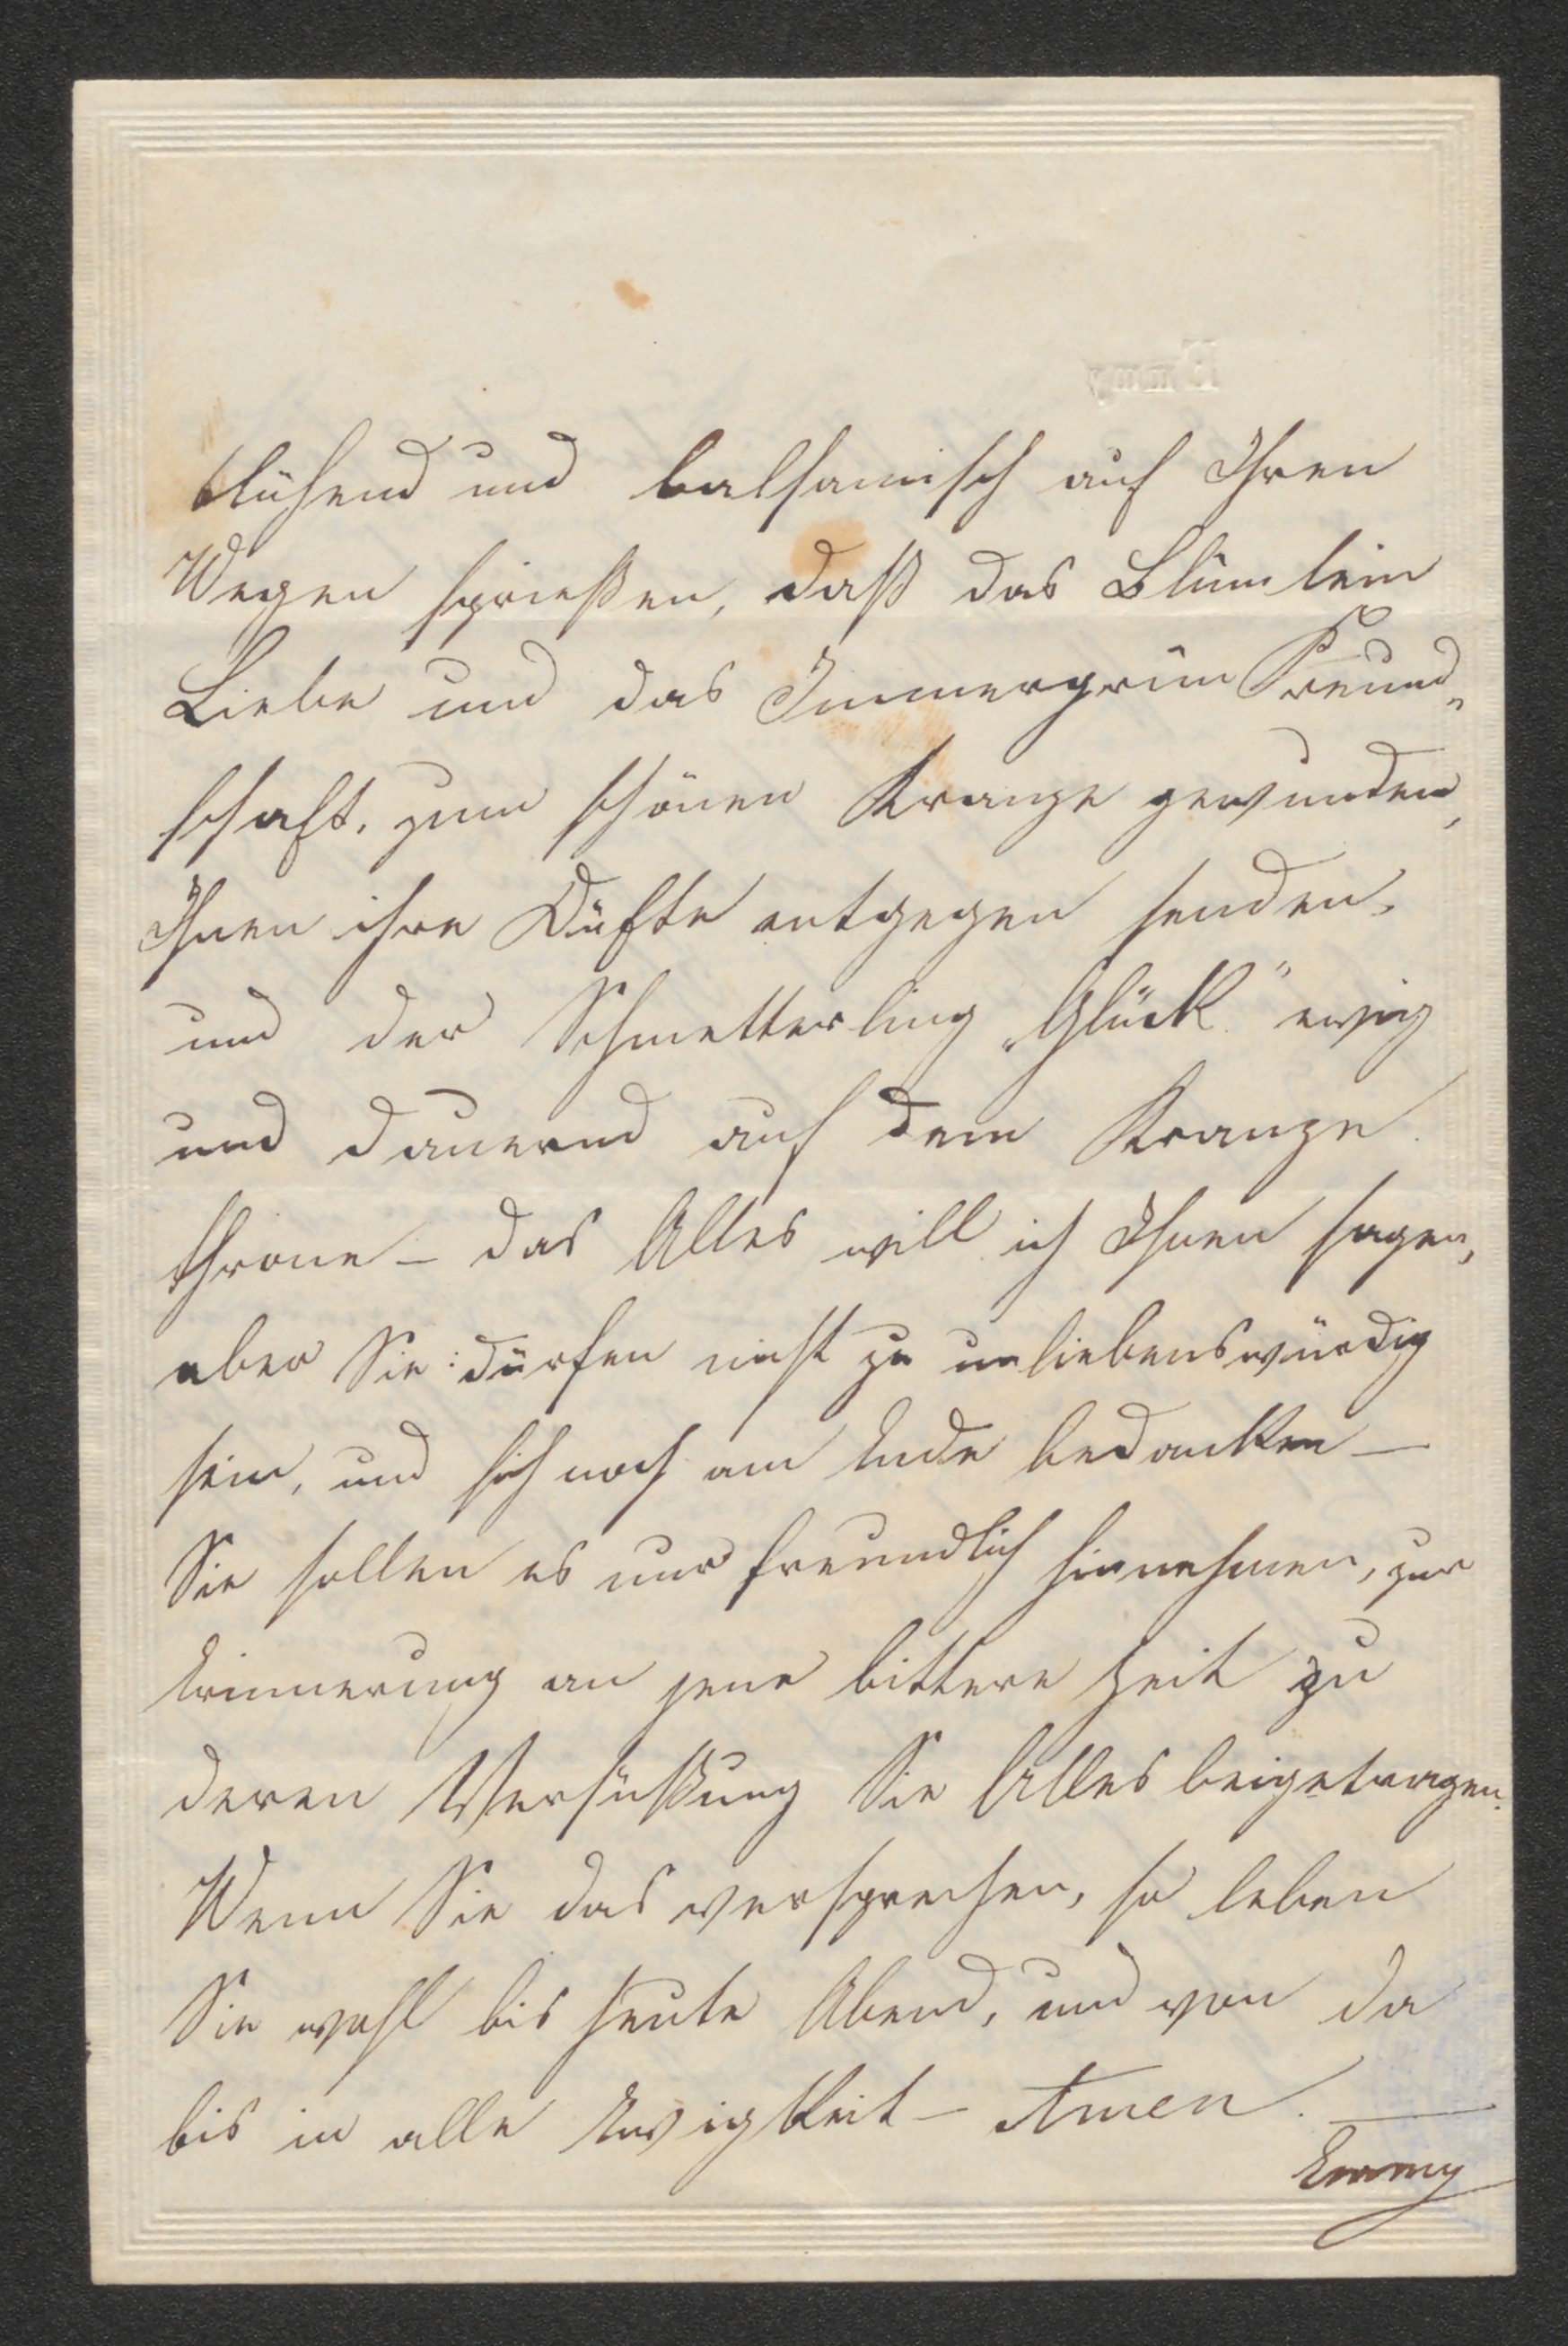 Emmy
blühend und balsamisch auf Ihren
Wegen sprießen, daß das Blümlein
Liebe und das Immergrün Freund„
schaft, zum schönen Kranze gewunden,
Ihnen ihre Düfte entgegen senden,
und der Schmetterling „Glück“ ewig
und dauernd auf dem Kranze
throne – das Alles will ich Ihnen sagen,
aber Sie dürfen nicht zu unliebenswürdig
sein, und sich noch am Ende bedanken –
Sie sollen es nur freundlich hinnehmen, zur
Erinnerung an jene bittere Zeit zu
deren Versüßung Sie Alles beigetragen.
Wenn Sie das versprechen, so leben
Sie wohl bis heute Abend, und von da
bis in alle Ewigkeit – Amen. —
Emmy